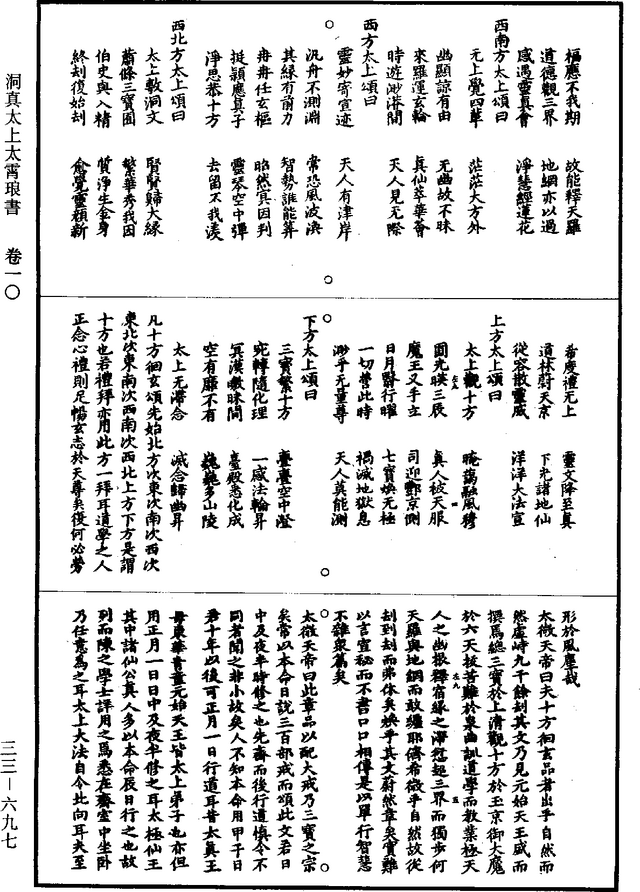 福應不我期　故能釋天羅
道德觀三界　地網亦以過
感遇靈真會　淨慧經蓮花
西南方太上頌曰
无上覺四華　茫茫大方外
幽顯諒有由　无幽故不昧
來羅運玄輪　真仙萃華薈
時遊渺漭間　天人見无際
西方太上頌曰
靈妙寄宣迹　天人有津岸
汎舟不測淵　常恐風波渙
其緣有前力　智勢誰能筭
冉冉任玄樞　昭然冥因判
挺穎應真子　靈琴空中彈
淨思恭十方　去留不我渙
西北方太上頌曰
太上敷洞文　賢賢歸大緣
蕭條三寶園　繁華秀我因
伯史與入精　質淨生金身
終刻復始刻　愈覺靈顏新
希慶禮无上　靈文降至真
道林蔚天京　下光諸地仙
從容散靈威　洋洋大法宣
上方太上頌曰
太上觀十方　晻藹融風穆
圓光映三辰　真人被天服
魔王叉手立　司迎酆京側
日月翳行曜　七寶煥无極
一切當此時　禍滅地獄息
渺乎无量尊　天人莫能測
下方太上頌曰
三寶繁十方　亹亹空中澄
宛轉隨化理　一感法輪昇
冥漠曒昧間　臺殿悉化成
空有靡不有　巍巍多山陵
太上无滯念　滅念歸幽昇
凡十方徊玄頌先始北方次東次南次西次
東北次東南次西南次西北上方下方是謂
十方也若禮拜亦用此方一拜耳道學之人
正念心禮則足暢玄志於天尊矣復何必勞
形於風塵哉
太微天帝曰夫十方徊玄品者出乎自然而
然虛峙九千餘刻其文乃見元始天王咸而
撰焉總三寶於上清觀十方於玉京御大魔
於六天拔苦難於泉曲訓道學而教業極天
人之幽根釋宿緣之滯愆超三界而獨步何
天羅與地網而敢纏耶儕希微乎自然故從
刻到刻而弗休矣煥乎其大蔚然章矣實難
以言宣秘而不書口口相傳是以單行智慧
不雜衆篇矣
太微天帝曰此章品以配大戒乃三寶之宗
矣常以本命日說三百部戒而頌此文若日
中及夜半時修之也先齋而後行道慎令不
同者聞之非小故矣人不知本命用甲子日
君十年以後可正月一日行道耳昔太真王
母東華青童元始天王皆太上弟子也亦但
用正月一日日中及夜半修之耳太極仙王
其中諸仙公真人多以本命辰日行之也故
列而陳之學士詳用之焉悉在齋室中坐卧
乃任意為之耳太上大法自今此向耳夫至
洞真太上太霄琅書　卷一〇
三三—六九七